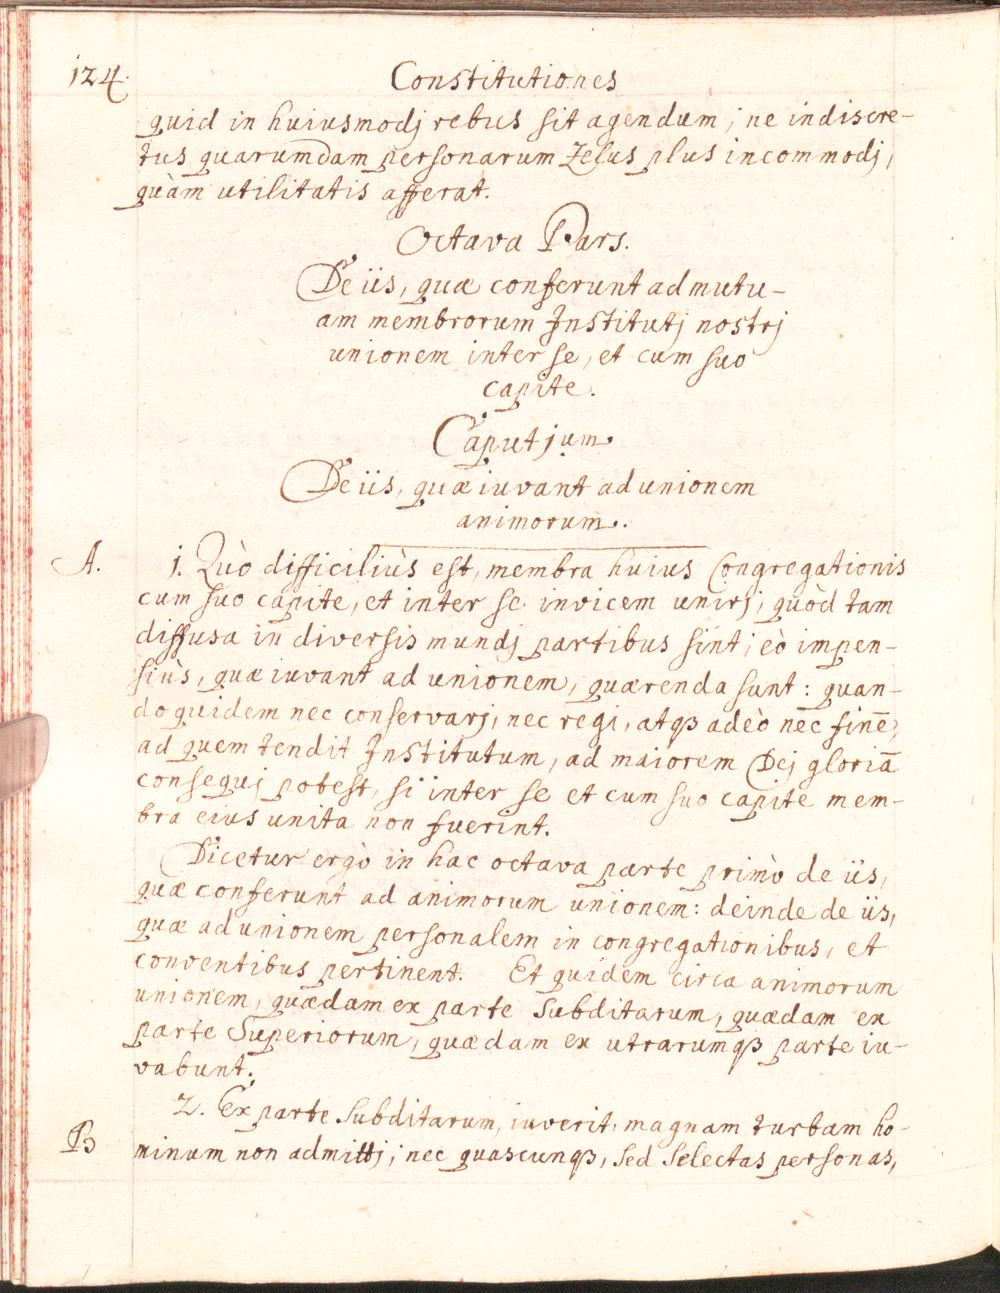 124.
Constitutiones
quid in huiusmodj rebus sit agendum; ne indiscre-
tus quarumdam personarum Zelus plus incommodj,
quàm utilitatis afferat.
Octava Pars.
De iis, quæ conferunt ad mutu-
am membrorum Institutj nostrj
unionem inter se, et cum suo
capite.
Caput jum.
De iis, quæ iuvant ad unionem
animorum.
A. 1. Quò difficiliùs est, membra huius Congregationis
cum suo capite, et inter se invicem unirj, quòd tam
diffusa in diversis mundj partibus sint; eò impen-
siùs, quæ iuvant ad unionem, quærenda sunt: quan-
do quidem nec conservarj, nec regi, atqȝ adeò nec finē,
ad quem tendit Institutum, ad maiorem Dej gloriā
consequj potest, si inter se et cum suo capite mem-
bra eius unita non fuerint.
Dicetur ergò in hac octava parte primò de iis,
quæ conferunt ad animorum unionem: deinde de iis,
quæ ad unionem personalem in congregationibus, et
conventibus pertinent. Et quidem circa animorum
unionem, quædam ex parte Subditarum, quædam ex
parte Superiorum, quædam ex utrarumqȝ parte iu-
vabunt.
2. Ex parte Subditarum, iuverit, magnam turbam ho-
B minum non admittj; nec quascunqȝ, sed selectas personas,